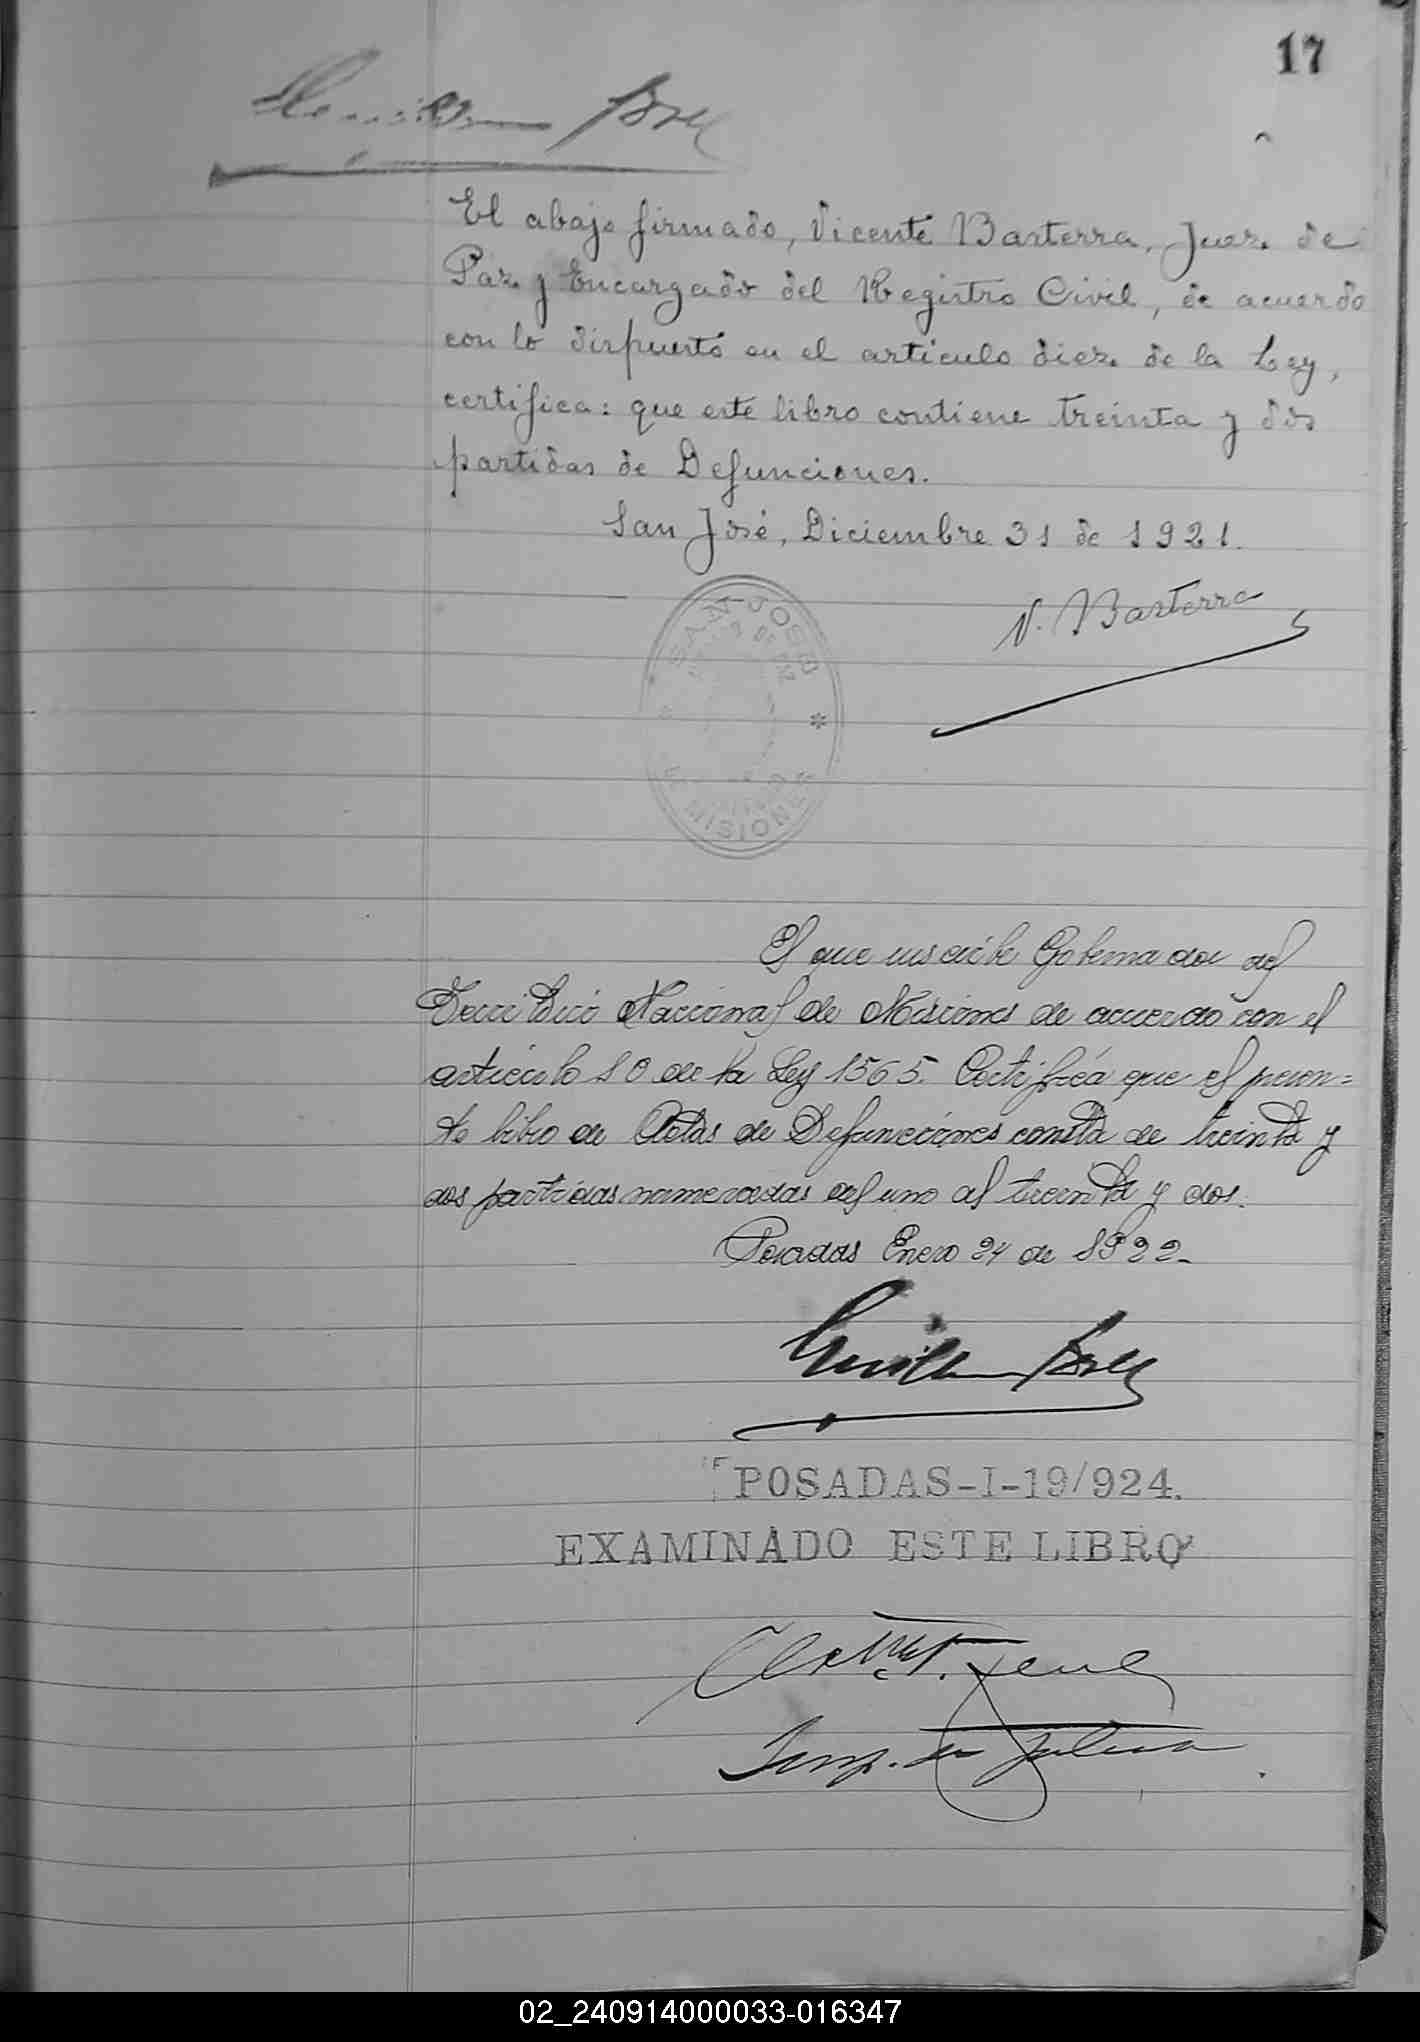 17
El abajo firmado, Vicente Basterra, Juez de
Paz y Encargado del Registro Civil, de acuerdo
con lo dispuesto en el articulo diez de la Ley,
certifica: que este libro contiene treinta y dos
partidas de Defunciones.
San José, Diciembre 31 de 1921.
V. Basterra
SAN JOSE
MISIONES
El que suscribe Gobernador del
Territorio Nacional de Misiones de acuerdo con el
articulo 10 de la Ley 1565. Certifica que el presen=
te libro de Actas de Defunciones consta de treinta y
dos partidas numeradas del uno al treinta y dos.
Posadas Enero 24 de 1922.
POSADAS-I-19/924.
EXAMINADO ESTE LIBRO
02_240914000033-016347